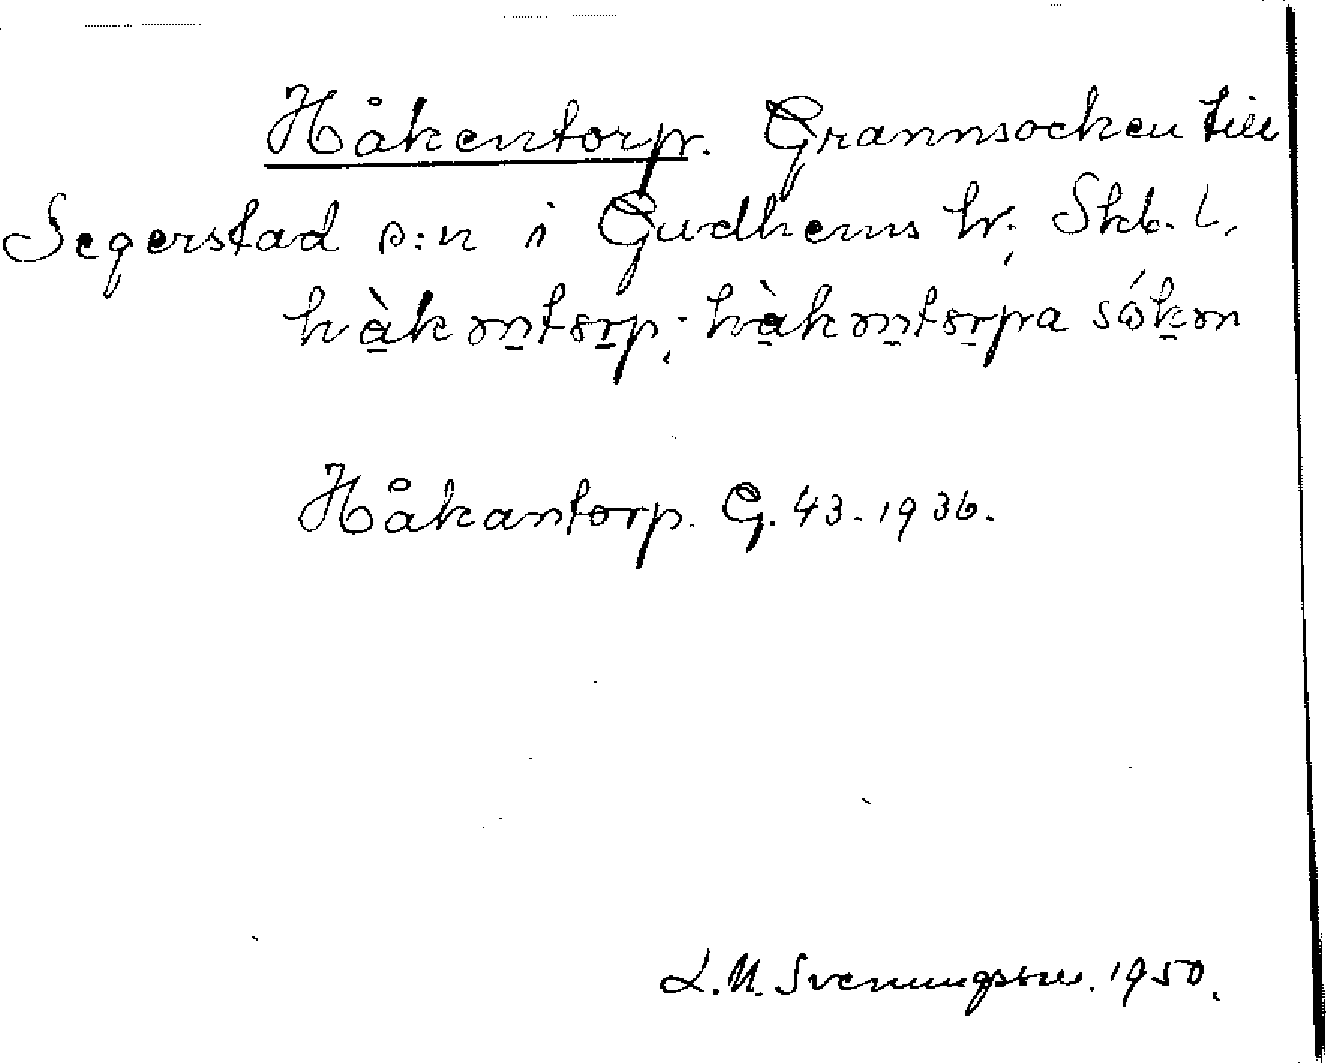 Håkentorp. Grannsocken till
Segerstad s:n i Gudhems hr, Skb. l.
hàkontorp; hàkontorpa sókon
Håkantorp. G. 43. 1936.
L.M. Svenungsson. 1950.